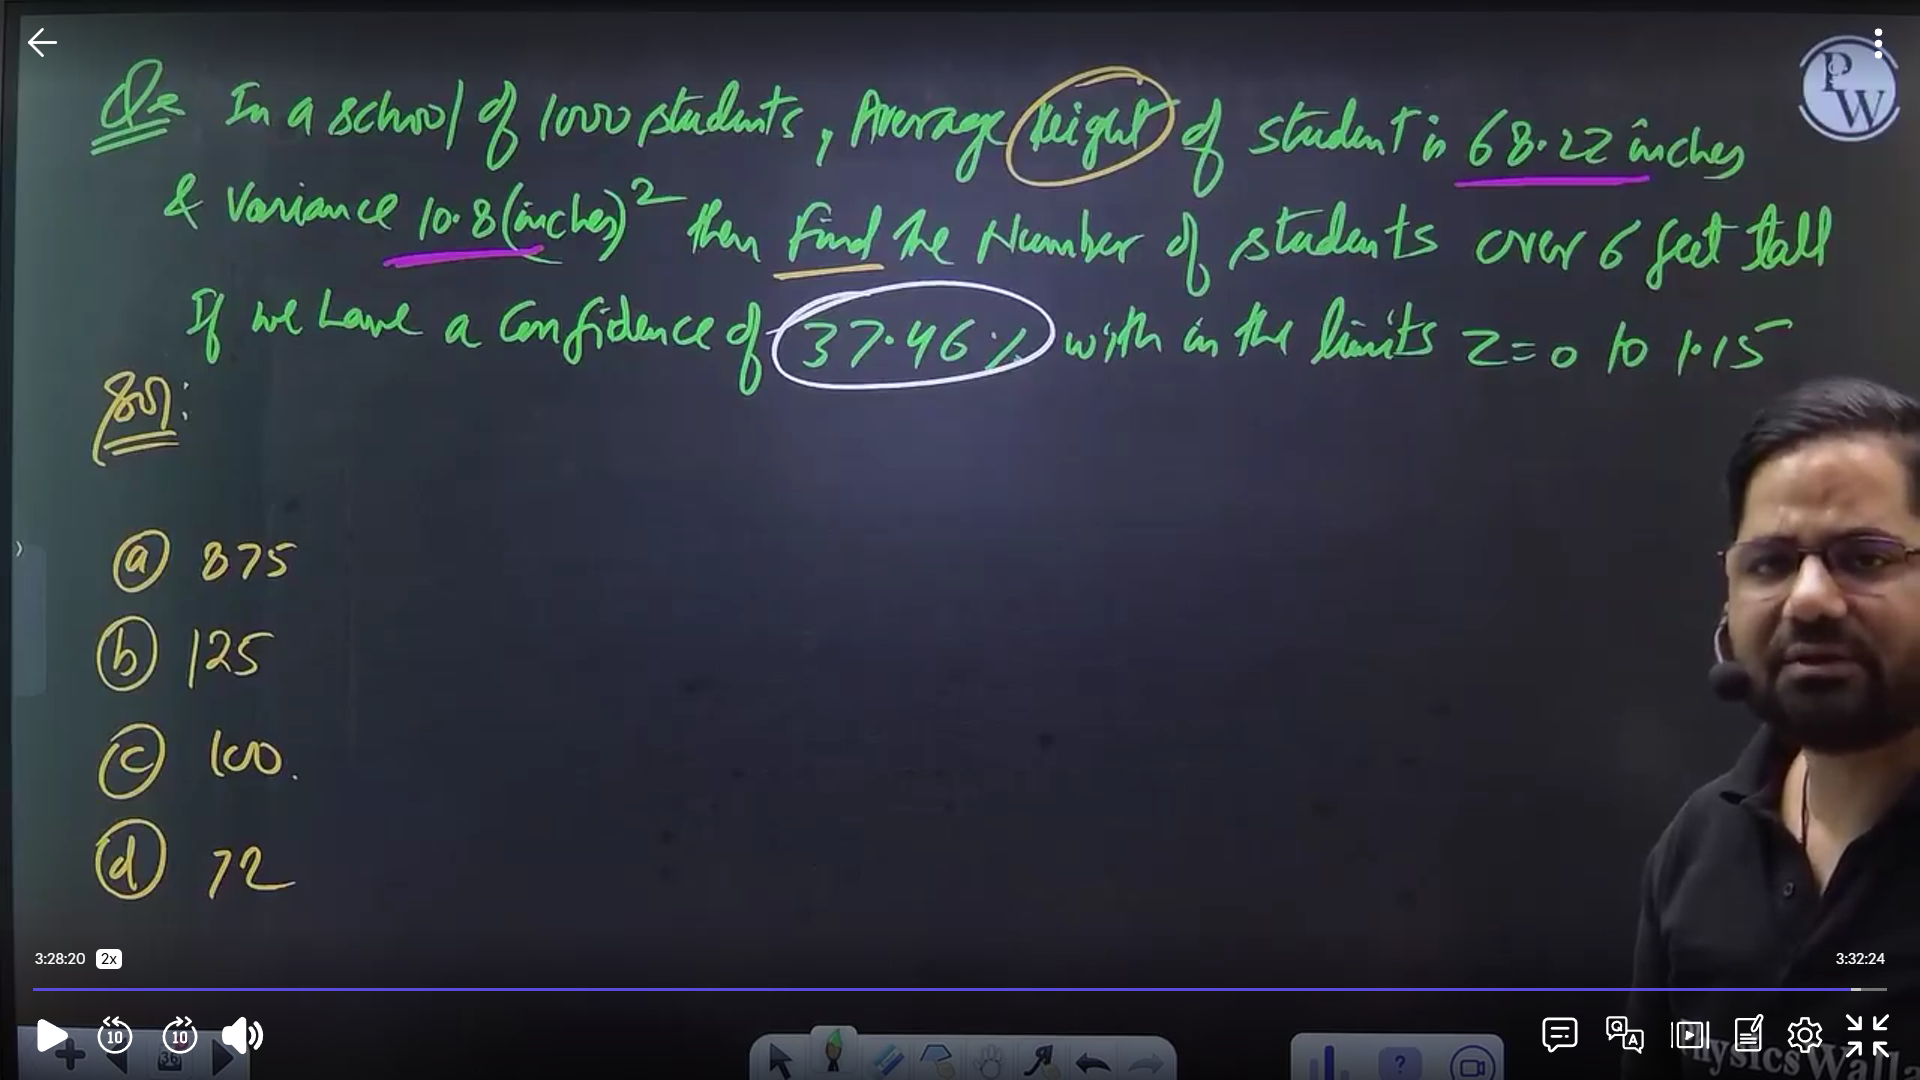 Q: In a school of 1000 students, Average height of student is 68.22 inches
& Variance 10.8 (inches)² then find the Number of students over 6 feet tall
If we have a confidence of 37.46% with in the limits Z=0 to 1.15
Sol:
(a) 875
(b) 125
(c) 100.
(d) 72
PW
3:28:20 2x
3:32:24
10 10
36
?
Q A